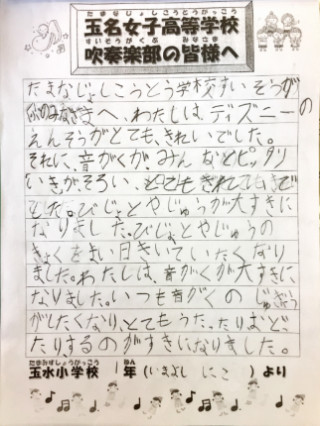 たまなじょしこうとうがっこう
玉名女子高等学校
すいそうがくぶ みなさま
吹奏楽部の皆様へ
たまなじょしこうとう学校すいそうが
のみなさまへ、わたしは、ディズニーの
えんそうがとても、きれいでした。
それに、音がくが、みんなとピッタリ
いきがそろい、とてもきれいで
した。びじょとやじゅうが大すきに
なりました。びじょとやじゅうの
きょくをまい日きいていたくなり
ました。わたしは、音がくが大すきに
なりました。いつも音がくの じゅぎょう
がしたくなり、とてもうた、たりおど、
たりするのがすきになりました。
たまみずしょうがっこう ねん
玉水小学校 1年(いまよし にこ)より